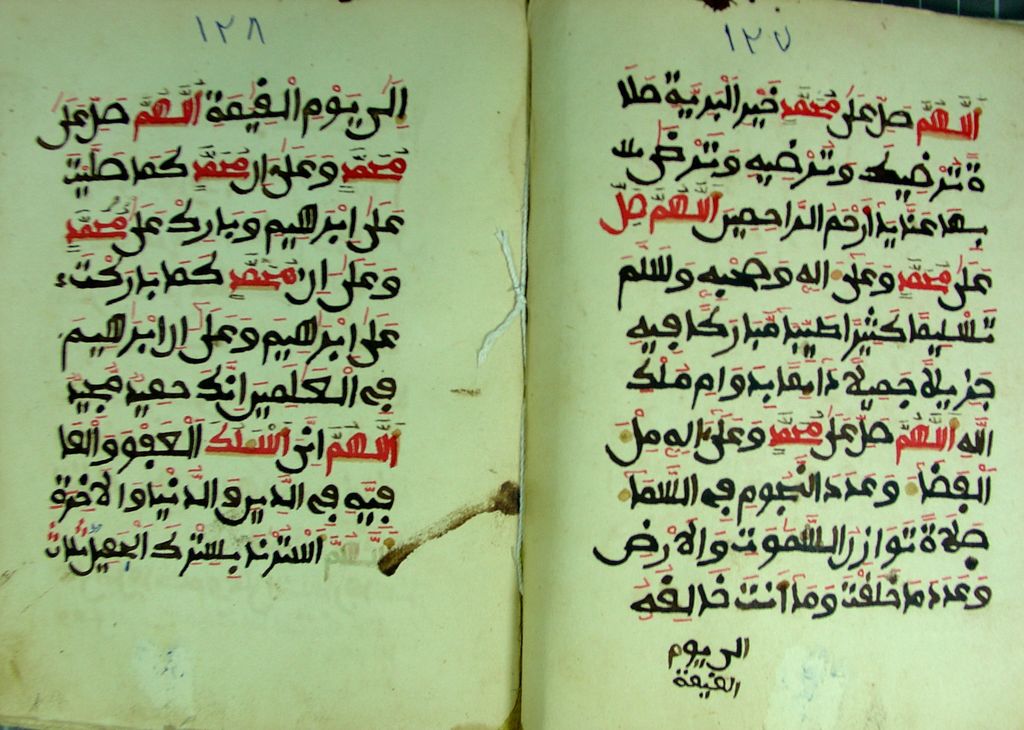 ١٢٧
اللهم صل على محمد خير البرية صلا
ة ترضيك وترضيه وترضى
بها عنا يا أرحم الراحمين اللهم صل
على محمد وعلى اله وصحبه وسلم
تسليما كثيرا طيبا مباركا فيه
جزيلا جميلا دائما بدوام ملك
الله اللهم صل على محمد وعلى اله مل
الفضا وعدد النجوم في السما
صلاة توازن السموت والارض
وعدد ما خلقت وما أنت خالقه
الى يوم
القيمة
١٢٨
الى يوم القيمة اللهم صل على
محمد وعلى ال محمد كما صليت
على ابرهيم وبارك على محمد
وعلى ال محمد كما باركت
على ابرهيم وعلى ال ابرهيم
في العلمين انك حميد مجيد
اللهم اني اسلك العفو والعا
فية في الدين والدنيا والاخرة
استرنا بسترك الجميل